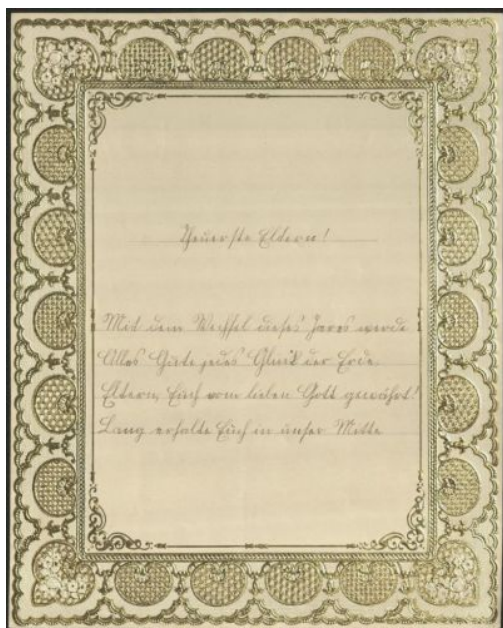 Theuerste Eltern!
Mit dem Wechsel dieses Jares werde
Alles Gute jedes Glück der Erde
Eltern, Euch vom lieben Gott gewährt!
Lang erhalte Euch in unser Mitte